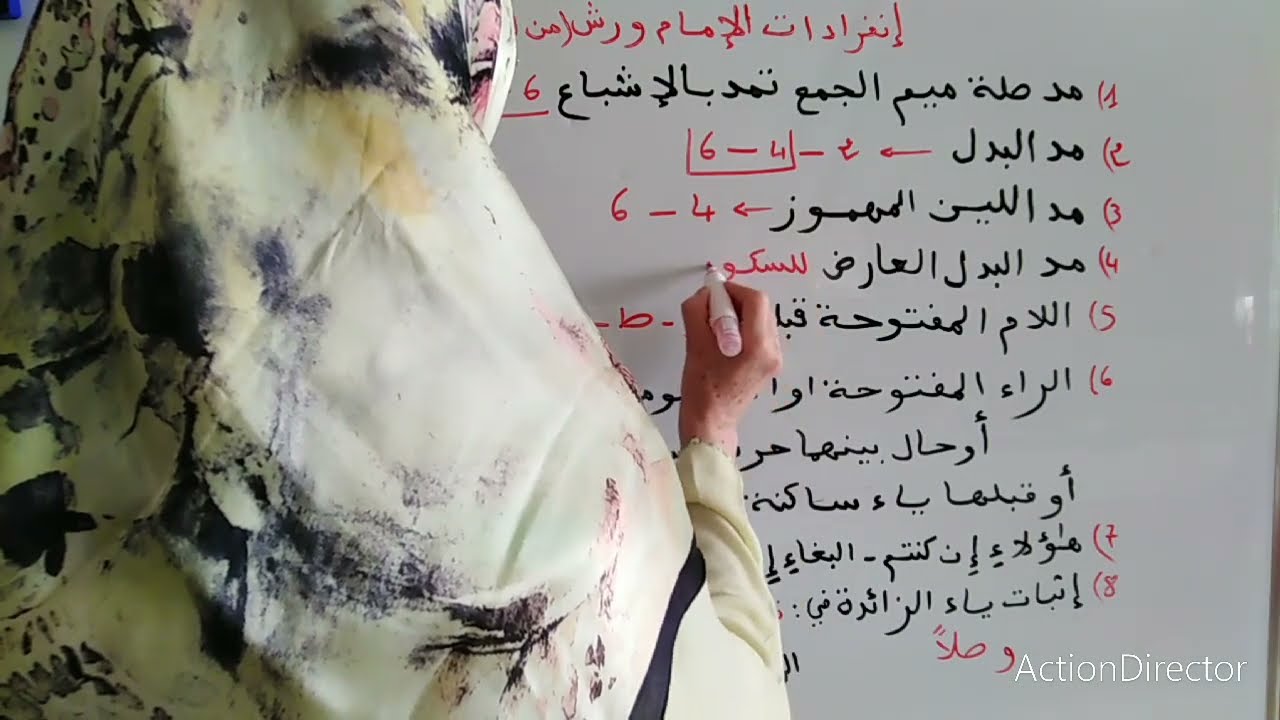 إنفرادات الإمام ورش (من
1) مد صلة ميم الجمع تمد بالإشباع 6
2) مد البدل ← 2 - 4 - 6
3) مد اللين المهموز ← 4 - 6
4) مد البدل العارض للسكو
5) اللام المفتوحة - ط -
6) الراء المفتوحة
أو حال بينهما
أو قبلها ياء ساكنة
7) هٰؤلاءِ إِن كنتم - البغاءِ إِ
8) إثبات ياء الزائدة في:
وصلاً
ActionDirector